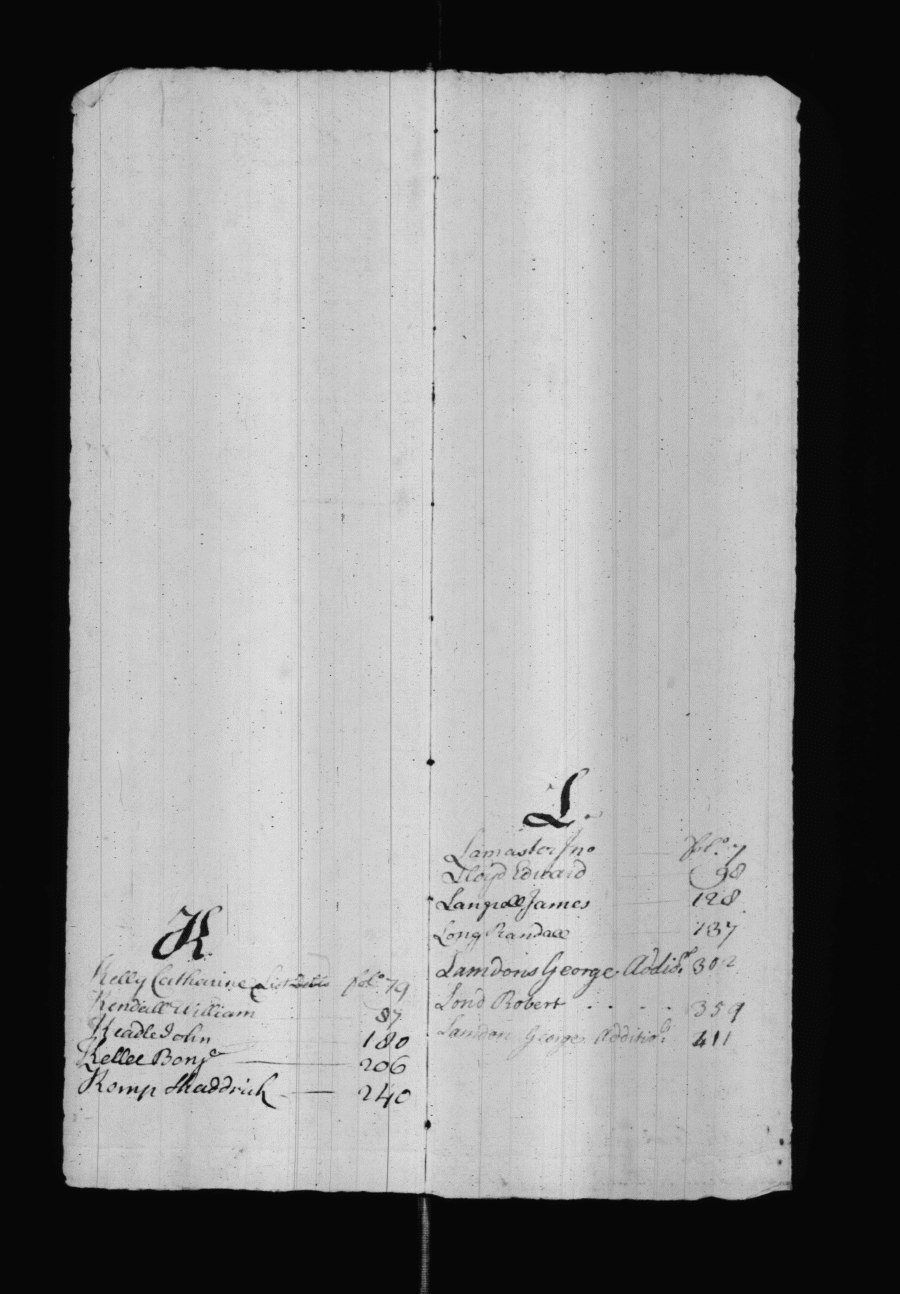 K
Kelly Catharine List Debts fol. 79
Kendall William 87
Keadle John 180
Kellee Benj.a 206
Kemp Shaddrick 240
L.
Lamaster Jno fol. 7
Lloyd Edward 98
Lanpell James 128
Long Randall 137
Lamdons George Addi 302
Lond Robert 359
Lamdon George Additio 411